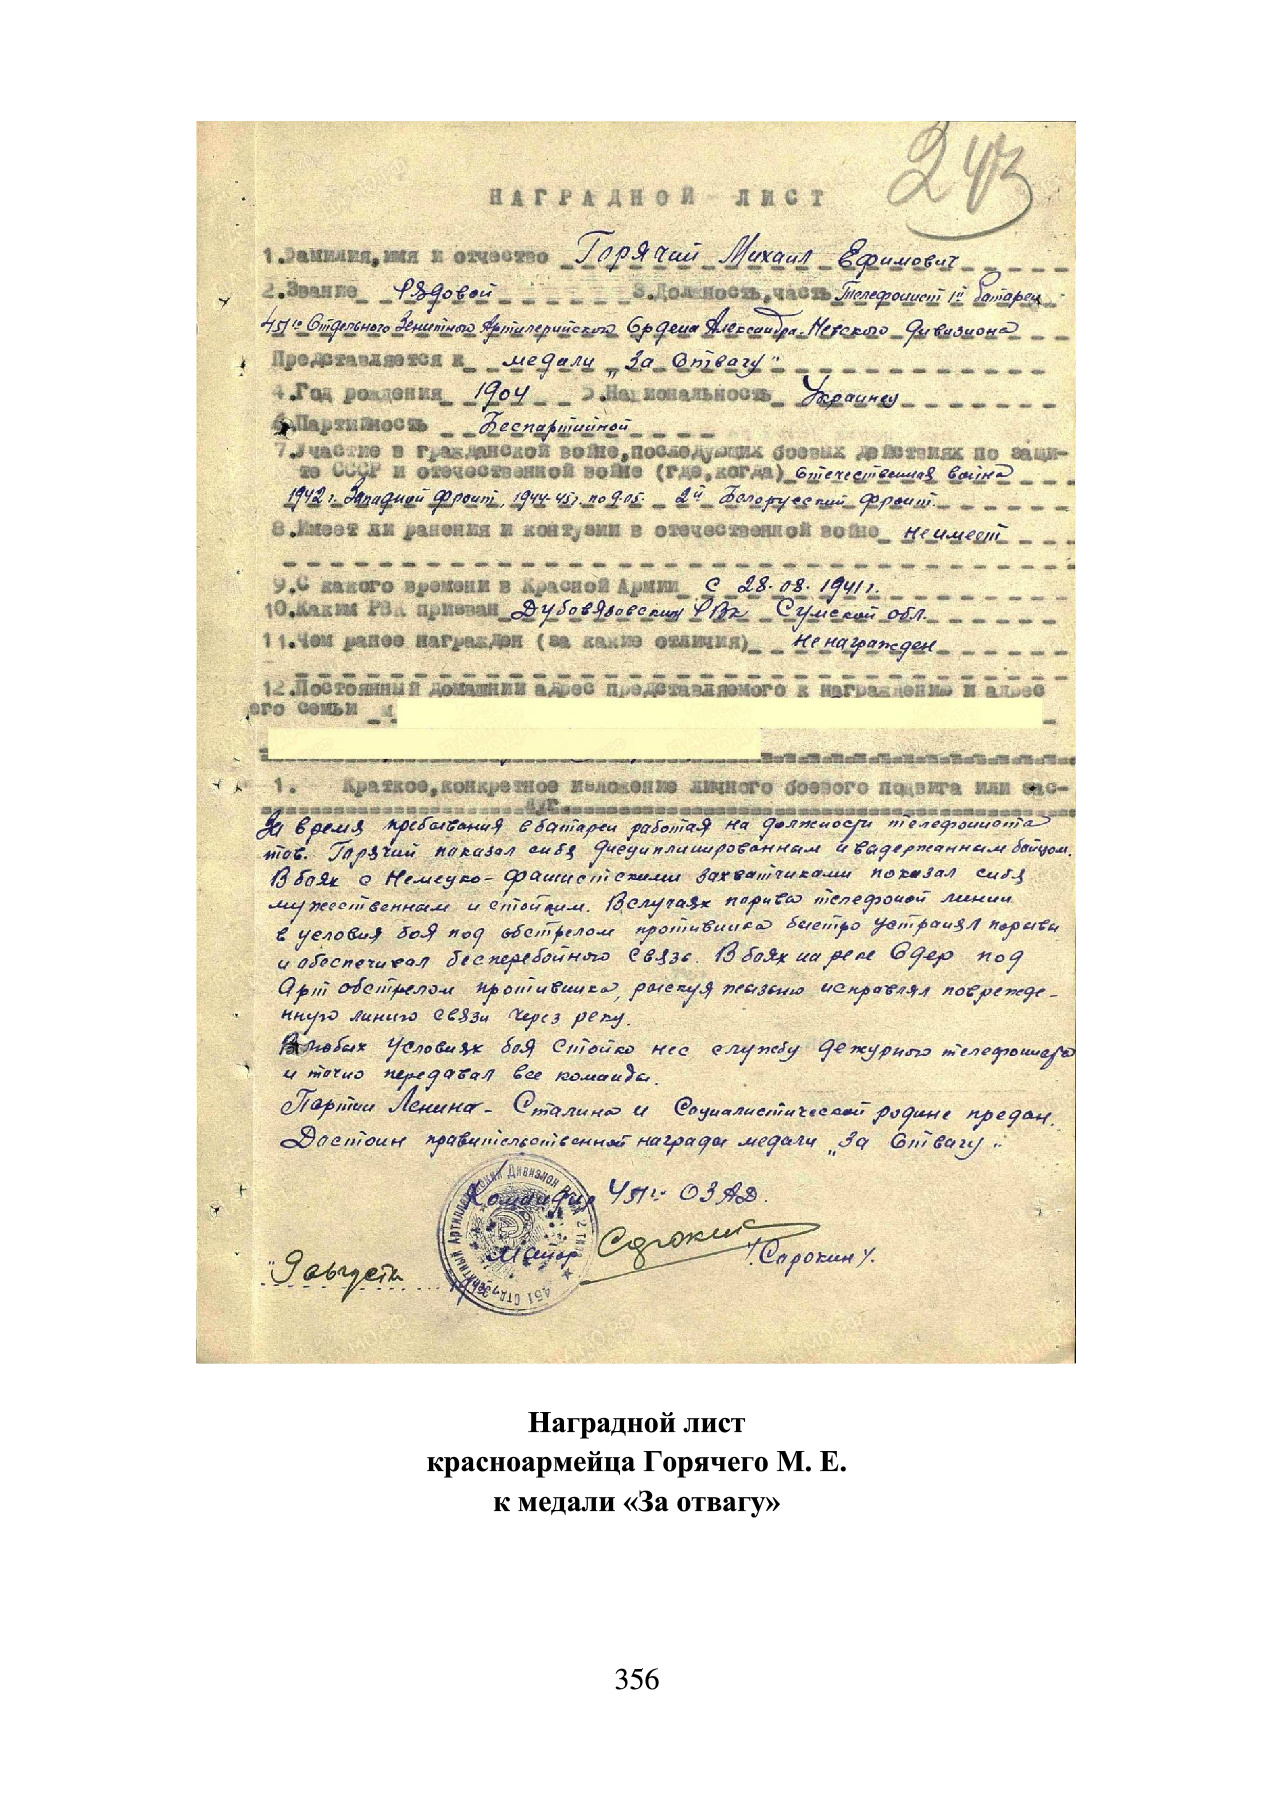 243
НАГРАДНОЙ ЛИСТ
1.Фамилия,имя и отчество Горячий Михаил Ефимович
2.Звание Рядовой 3.Должность,часть Телефонист 1й батареи
451го Отдельного Зенитного Артилерийского Ордена Александра-Невского Дивизиона
Представляется к медали „За Отвагу"
4.Год рождения 1904 5.Национальность Украинец
6.Партийность Беспартийной
7.Участие в гражданской войне,последующих боевых действиях по защи-
те СССР и отечественной войне (где,когда) отечественная война
1942г. Западной фронт, 1944-45г. по 9.05. 2й Белорусский фронт.
8.Имеет ли ранения и контузии в отечественной войне не имеет
9.С какого времени в Красной Армии с 28.08.1941г.
10.Каким РВК призван Дубовязовским РВК Сумской обл.
11.Чем ранее награжден (за какие отличия) Не награжден
12.Постоянный домашний адрес представляемого к награждению и адрес
его семьи
1. Краткое,конкретное изложение личного боевого подвига или зас-
луг.
За время пребывания в батареи работая на должности телефониста
тов. Горячий показал себя дисциплинированным и выдержанным бойцом.
В боях с Немецко-фашистскими захватчиками показал себя
мужественным и стойким. В случаях порыва телефоной линии
в условия боя под обстрелом противника быстро устранял порывы
и обеспечивал бесперебойного связь. В боях на реке Одер под
Арт обстрелом противника, рискуя жизнью исправлял поврежде-
нную линию связи через реку.
В любых условиях боя стойко нес службу дежурного телефониста
и точно передавал все команды.
Партии Ленина-Сталина и Социалистической родине предан.
Достоин правительственной награды медали „За Отвагу".
Командир 451го ОЗАД.
Майор /Сорокин/.
"9 августа
Наградной лист
красноармейца Горячего М. Е.
к медали «За отвагу»
356